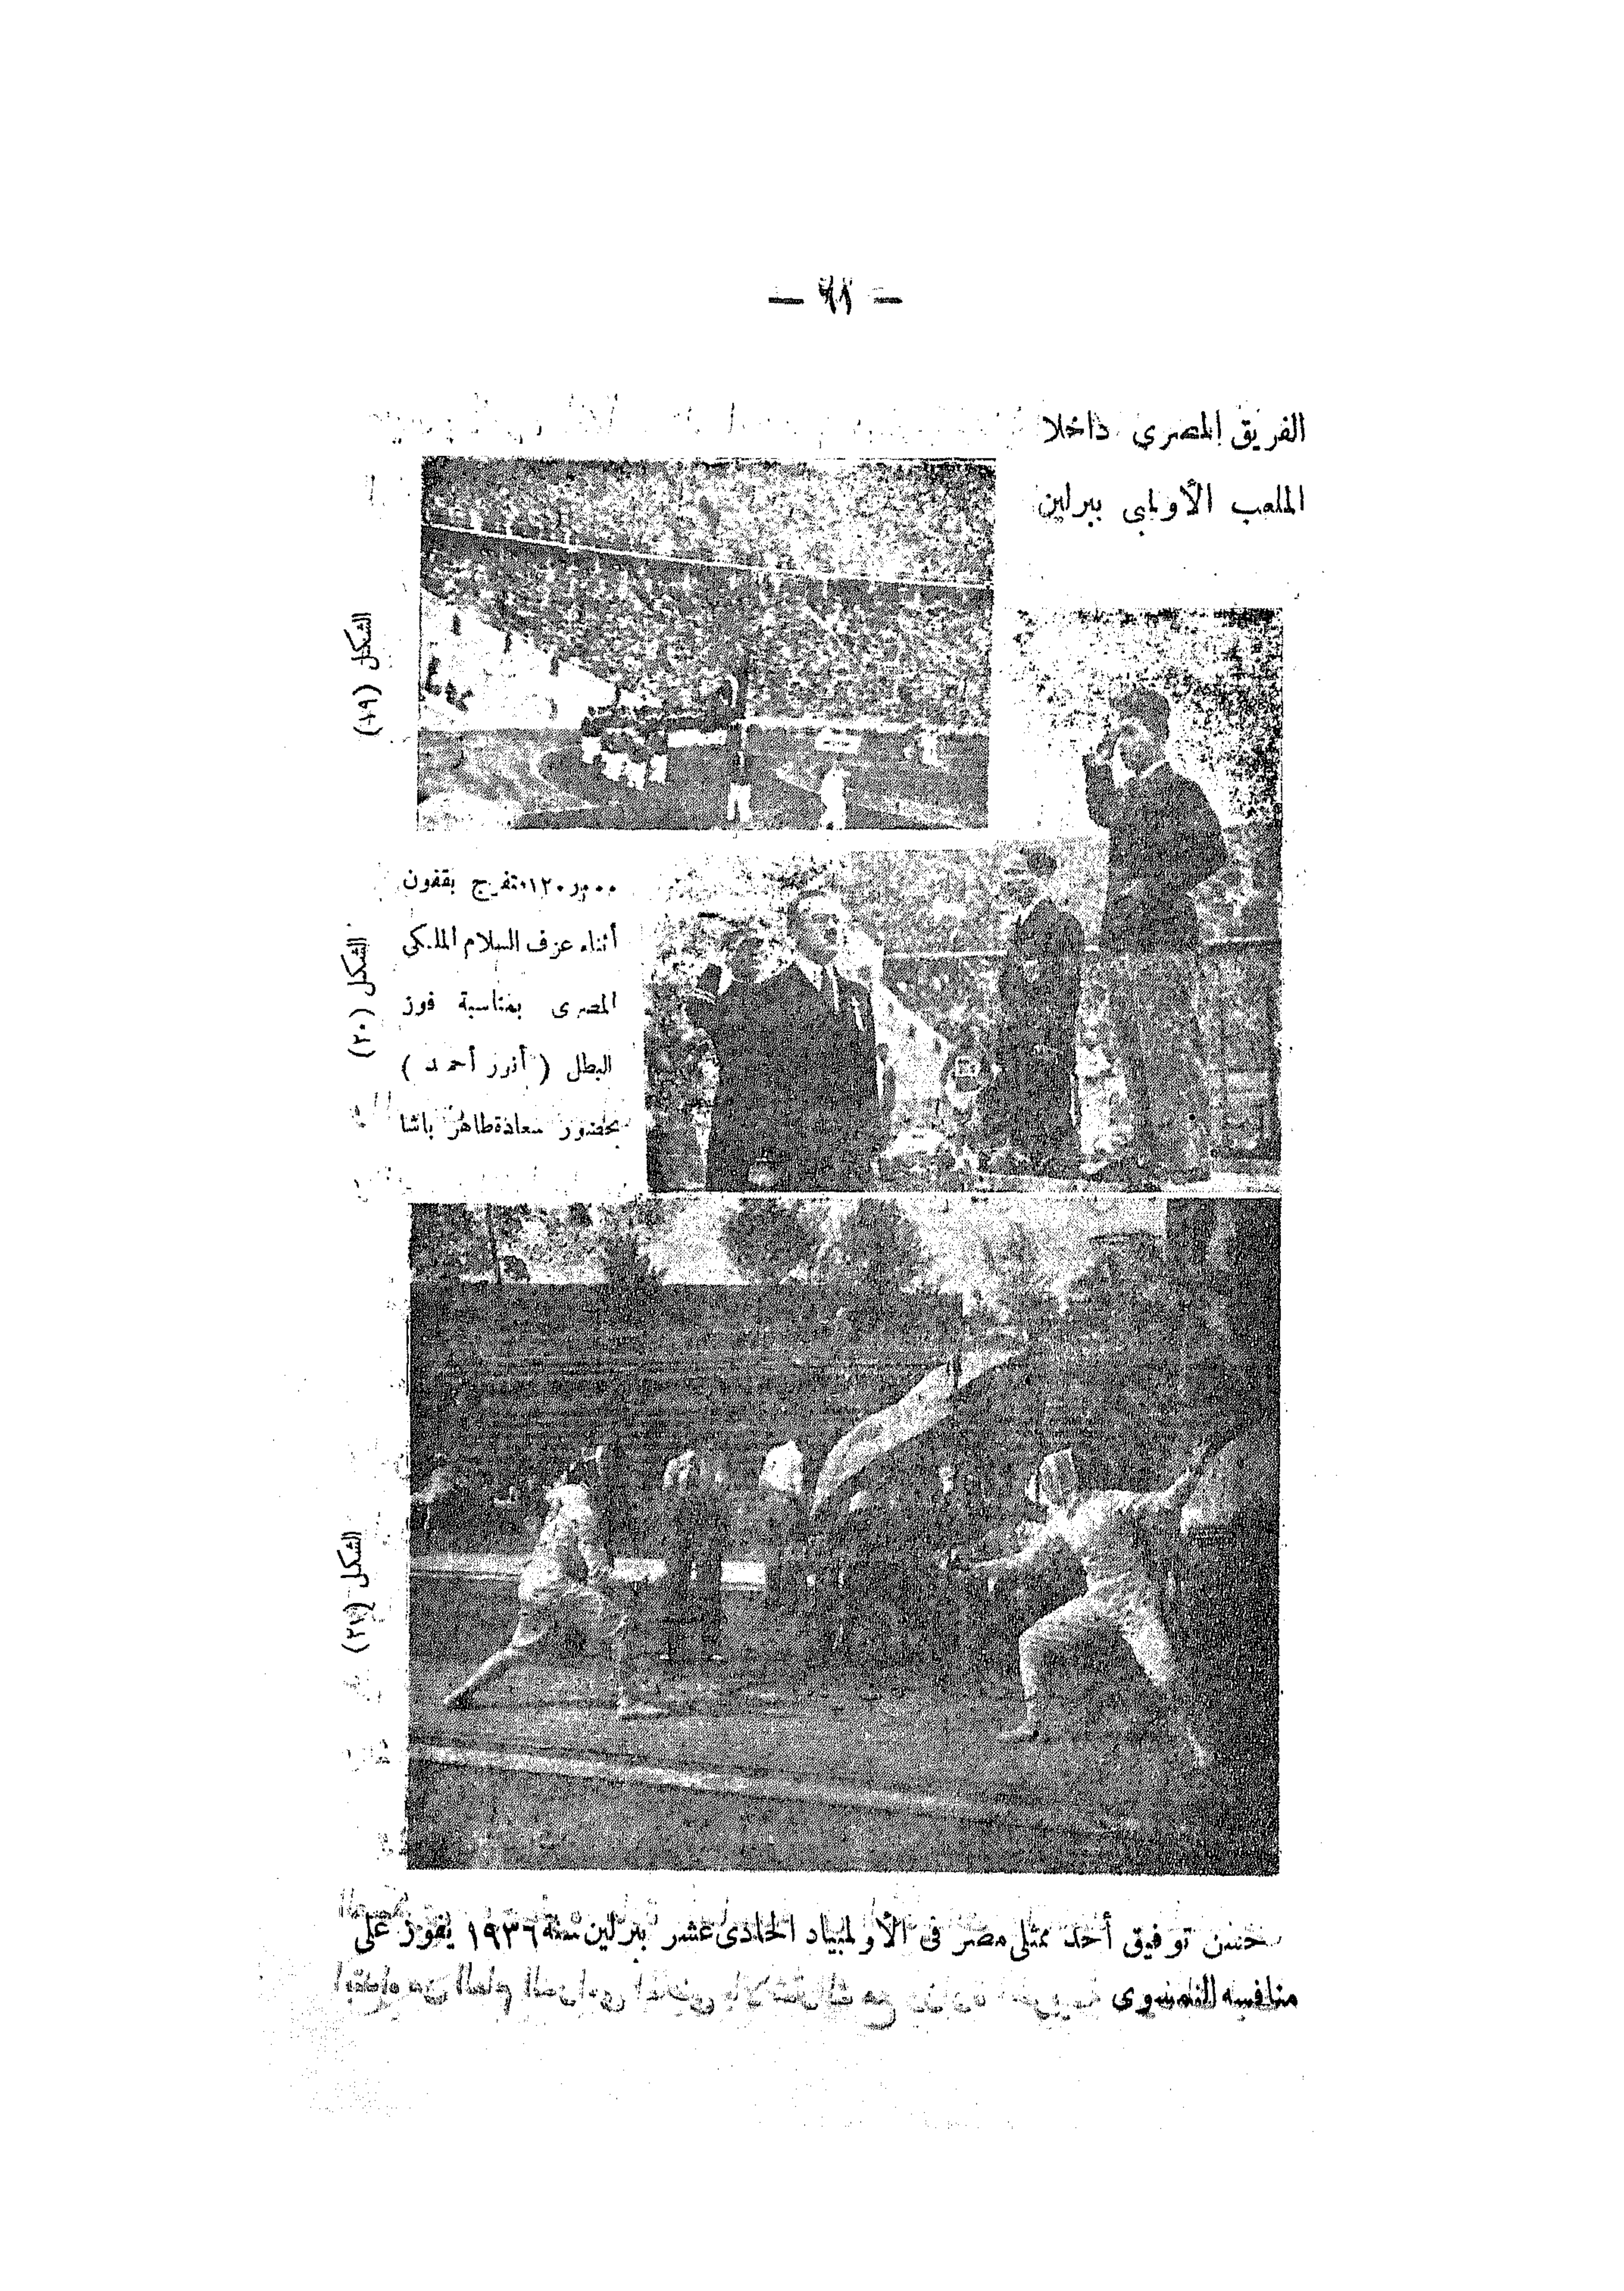 — ٦١ —
الفريق المصرى داخلا
الملعب الأولمبى ببرلين
الشكل (١٩)
متفرج يقفون
أثناء عزف السلام الملكى
المصرى بمناسبة فوز
البطل ( أنور أحمد )
بحضور سعادة طاهر باشا
الشكل (٢٠)
الشكل (٢١)
حسن توفيق أحد ممثلى مصر فى الأولمبياد الحادى عشر ببرلين سنة ١٩٣٦ يفوز على
منافسه النمسوى